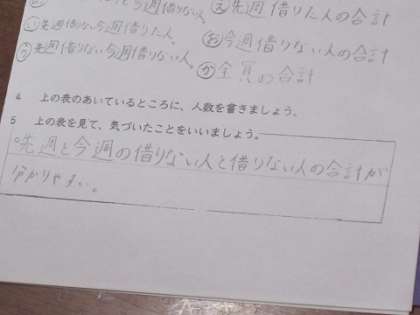 今週借りない人
え先週借りた人の合計
い先週借りない今週借りた人
お今週借りない人の合計
う先週借りない今週借りない人
か全員の合計
4 上の表のあいているところに、人数を書きましょう。
5 上の表を見て、気づいたことをいいましょう。
先週と今週の借りない人と借りない人の合計が
分かりやすい。